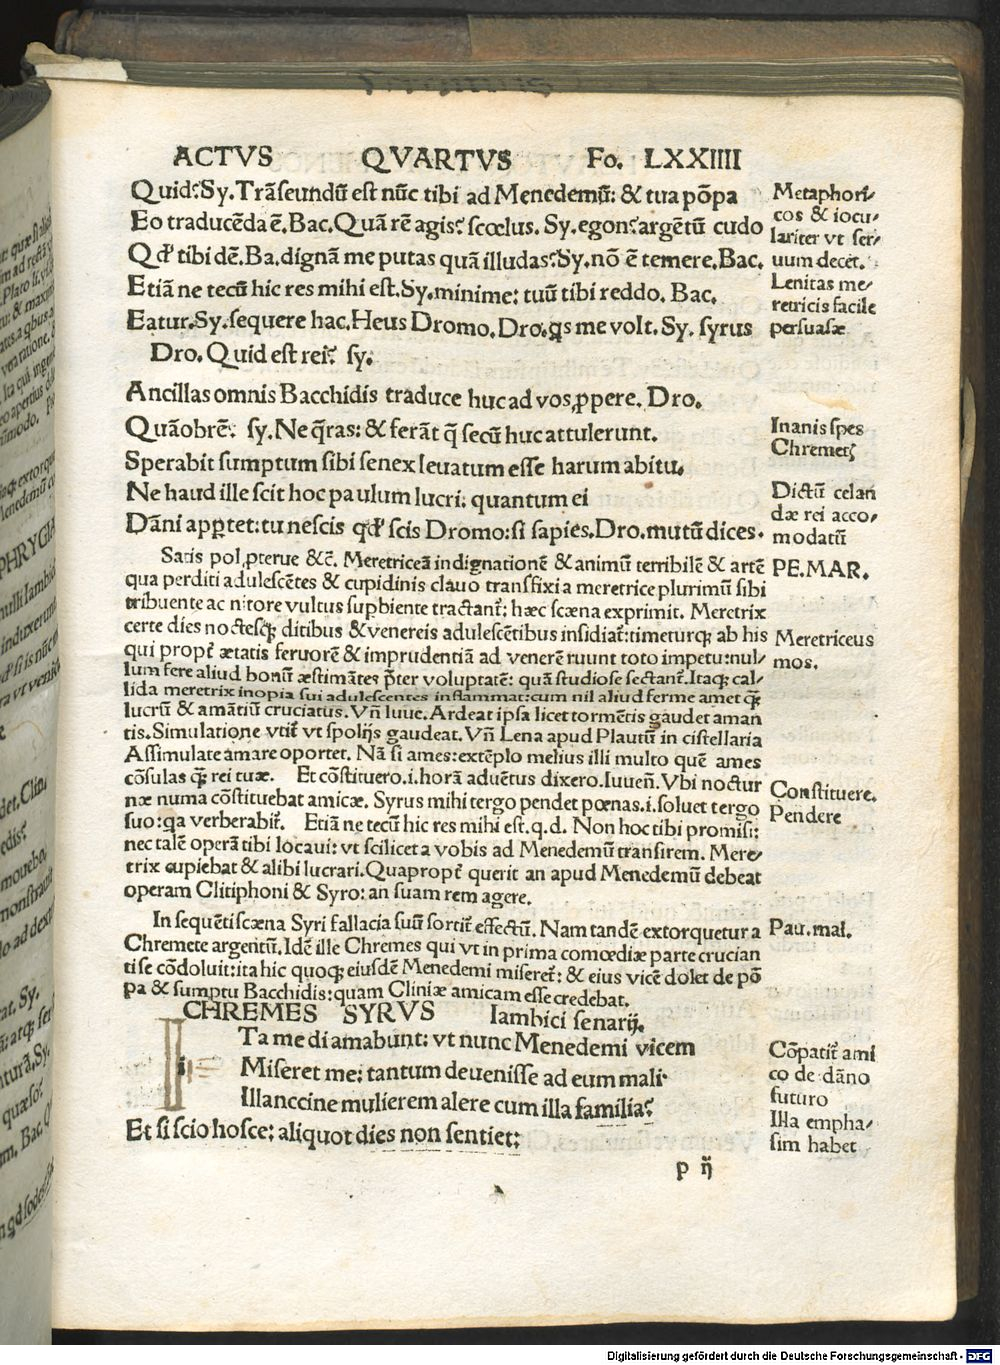 ACTVS QVARTVS Fo. LXXIIII
Quid? Sy. Trāseundū est nūc tibi ad Menedemū: & tua pōpa
Eo traducēda ē. Bac. Quā rē agis? scœlus. Sy. egon? argētū cudo
Qđ tibi dē. Ba. dignā me putas quā illudas? Sy. nō ē temere. Bac.
Etiā ne tecū hic res mihi est. Sy. minime: tuū tibi reddo. Bac.
Eatur. Sy. sequere hac. Heus Dromo. Dro. qs me volt. Sy. syrus
Dro. Quid est rei? sy.
Ancillas omnis Bacchidis traduce huc ad vos ꝓpere. Dro.
Quāobrē? sy. Ne q̄ras: & ferāt q̄ secū huc attulerunt.
Sperabit sumptum sibi senex leuatum esse harum abitu.
Ne haud ille scit hoc paulum lucri: quantum ei
Dāni apportet: tu nescis qđ scis Dromo: si sapies. Dro. mutū dices.
Satis pol ꝓterue &c̄. Meretriceā indignationē & animū terribilē & artē
qua perditi adulescētes & cupidinis clauo transfixi a meretrice plurimū sibi
tribuente ac nitore vultus supbiente tractant̄: hæc scæna exprimit. Meretrix
certe dies noctesq; ditibus & venereis adulescētibus insidiat̄: timeturq; ab his
qui propt̄ ætatis feruorē & imprudentiā ad venerē ruunt toto impetu: nul/
lum fere aliud bonū æstimātes p̄ter voluptatē: quā studiose sectant̄. Itaq; cal/
lida meretrix inopia sui adulescentes inflammat: cum nil aliud ferme amet q̄
lucrū & amātiū cruciatus. Vn̄ Iuue. Ardeat ipsa licet tormētis gaudet aman
tis. Simulatione vtit̄ vt spolijs gaudeat. Vn̄ Lena apud Plautū in cistellaria
Assimulate amare oportet. Nā si ames: extēplo melius illi multo quē ames
cōsulas q̄ rei tuæ. Et cōstituero .i. horā aduētus dixero. Iuuen. Vbi noctur
næ numa cōstituebat amicæ. Syrus mihi tergo pendet pœnas .i. soluet tergo
suo: qa verberabit̄. Etiā ne tecū hic res mihi est. q. d. Non hoc tibi promisi:
nec talē operā tibi locaui: vt scilicet a vobis ad Menedemū transirem. Mere/
trix cupiebat & alibi lucrari. Quapropt̄ querit an apud Menedemū debeat
operam Clitiphoni & Syro: an suam rem agere.
In sequēti scæna Syri fallacia suū sortit̄ effectū. Nam tandē extorquetur a
Chremete argentū. Idē ille Chremes qui vt in prima comœdiæ parte crucian
ti se cōdoluit: ita hic quoq; eiusdē Menedemi miseret̄: & eius vicē dolet de pō
pa & sumptu Bacchidis: quam Cliniæ amicam esse credebat.
CHREMES SYRVS Iambici senarij.
i Ta me di amabunt: vt nunc Menedemi vicem
Miseret me: tantum deuenisse ad eum mali
Illanccine mulierem alere cum illa familia?
Et si scio hosce: aliquot dies non sentiet:
p ij
Metaphori/
cos & iocu/
lariter vt ser/
uum decet.
Lenitas me/
retricis facile
persuasæ
Inanis spes
Chremetis
Dictū celan
dæ rei acco/
modatū
PE. MAR.
Meretriceus
mos.
Constituere.
Pendere
Pau. mal.
Cōpatit̄ ami
co de dāno
futuro
Illa empha/
sim habet
Digitalisierung gefördert durch die Deutsche Forschungsgemeinschaft - DFG